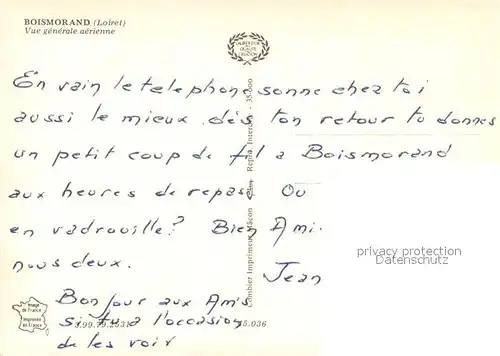 BOISMORAND (Loiret)
Vue générale aérienne
LAURIER D'OR
QUALITÉ
CRÉATION
En vain le telephone sonne chez toi
aussi le mieux dés ton retour tu donnes
un petit coup de fil a Boismorand
aux heures de repas. Ou
en vadrouille? Bien Ami.
nous deux.
Jean
Bon jour aux Amis
si tu a l'occasion
de les voir
Combier Imprimeur Mâcon
Repro. Interdite - 35.000
privacy protection
Datenschutz
Image
de France
Imprimée
en France
3.99.79.2531
45.036